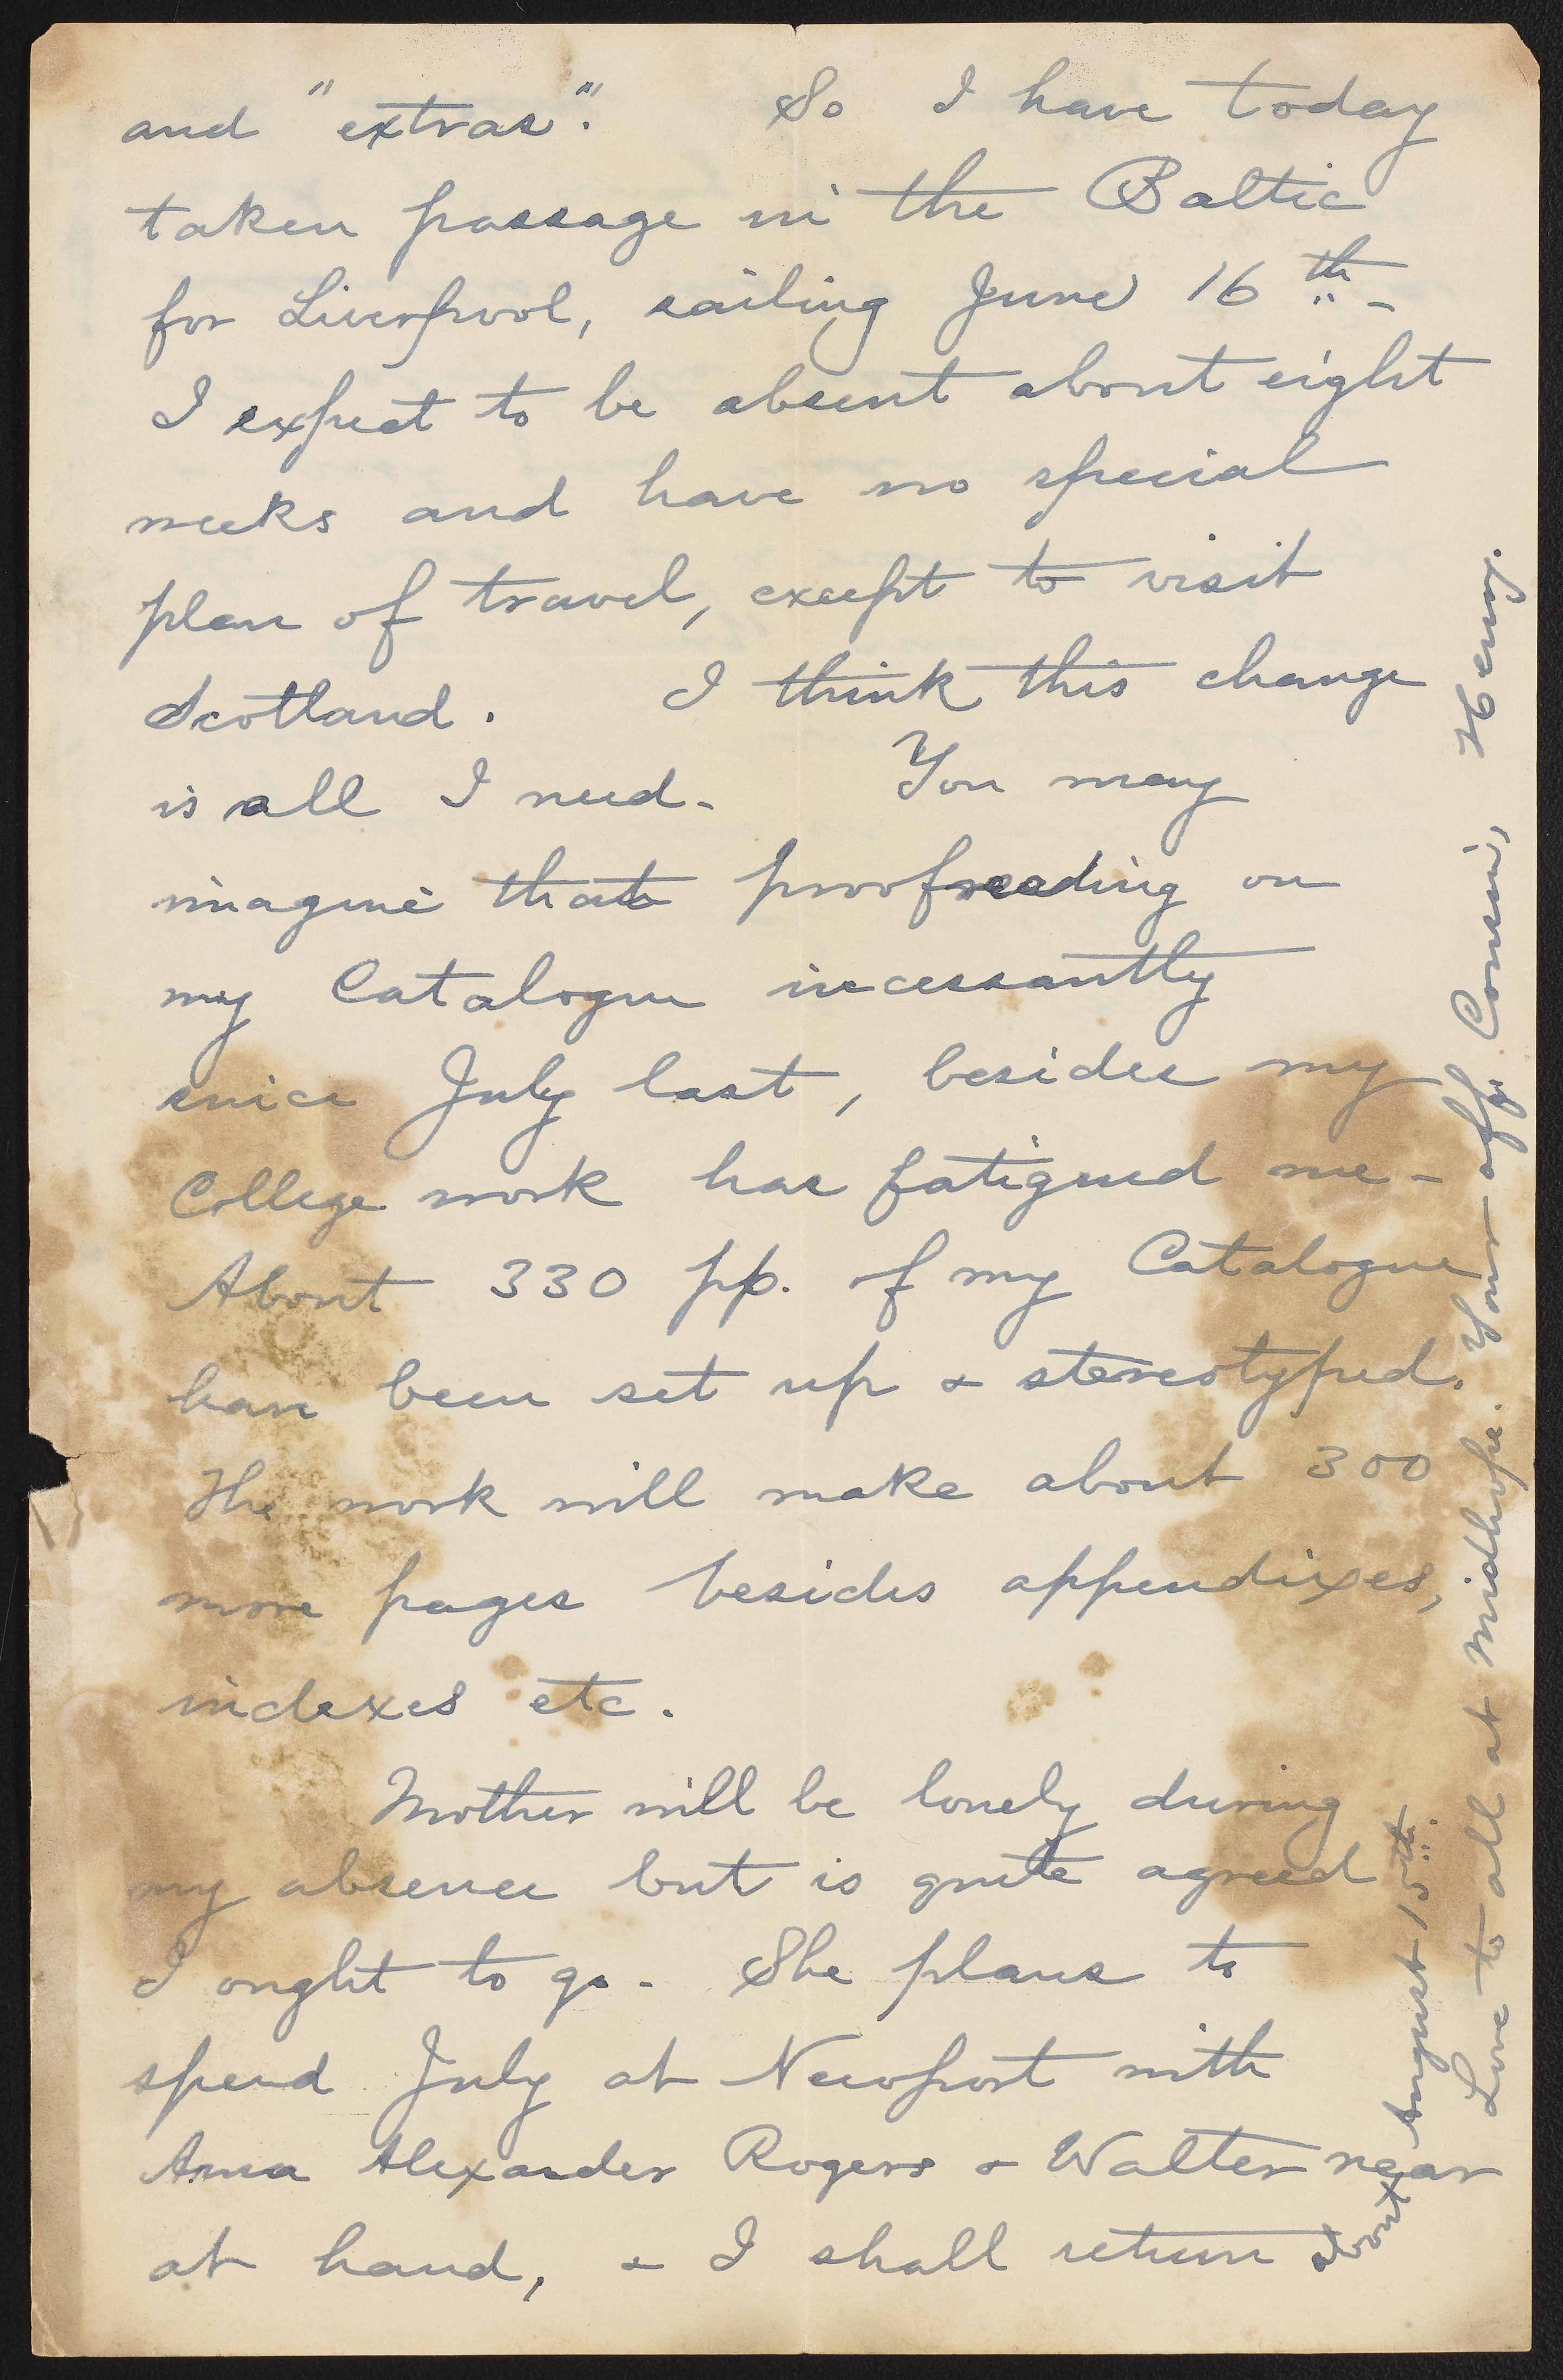 and "extras".    So I have today
taken passage in the Baltic
for Liverpool, sailing June 16th -
I expect to be absent about eight
weeks and have no special
plan of travel, except to visit
Scotland.    I think this change
is all I need.    You may
imagine that proofreading on
my Catalogue incessantly
since July last, besides my
College work has fatigued me -
About 330 pp. of my Catalogue
have been set up & stereotyped.
The work will make about 300
more pages besides appendixes,
indexes etc.
Mother will be lonely during
my absence but is quite agreed
I ought to go. She plans to
spend July at Newport with
Anna Alexander Rogers & Walter near
at hand, & I shall return about August 15th.
Love to all at Midhope. Your aff. Cousin, Henry.